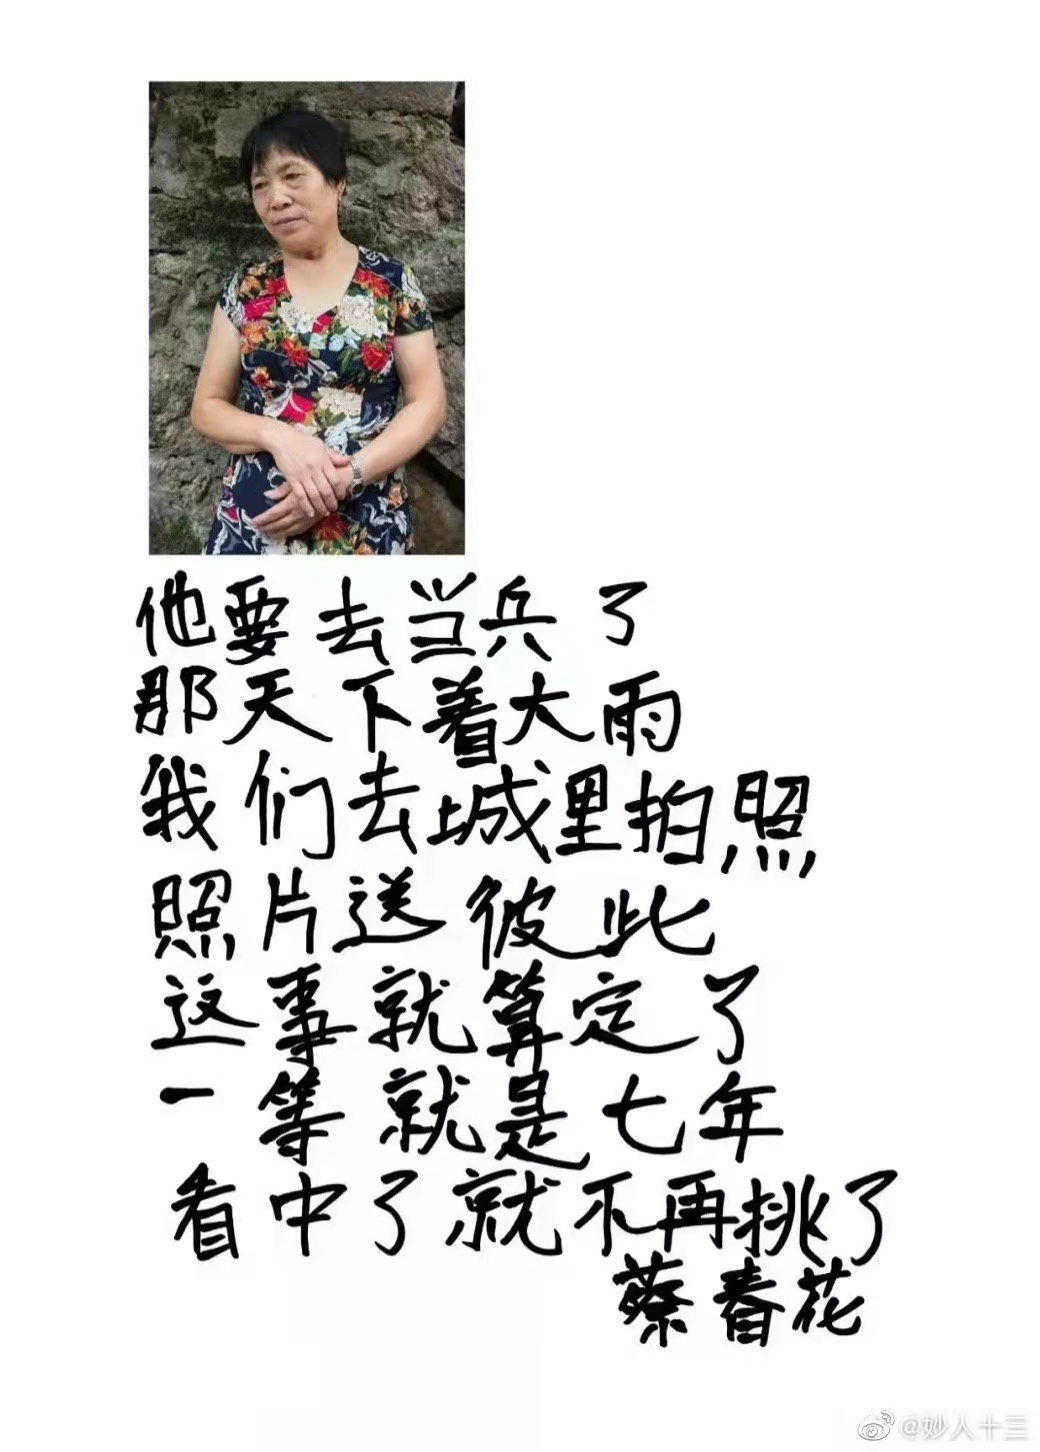 他要去当兵了
那天下着大雨
我们去城里拍照
照片送彼此
这事就算定了
一等就是七年
看中了就不再挑了
蔡春花
@妙人十三